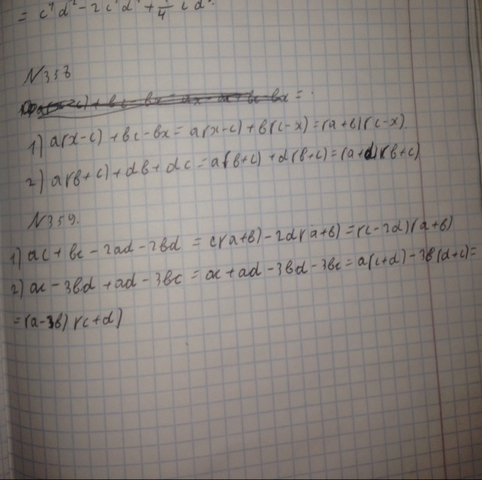 N 358
1) a(x-c) + bc - bx = a(x-c) + b(c-x) = (a+b)(c-x)
2) a(b+c) + db + dc = a(b+c) + d(b+c) = (a+d)(b+c)
N 359.
1) ac + bc - 2ad - 2bd = c(a+b) - 2d(a+b) = (c-2d)(a+b)
2) ac - 3bd + ad - 3bc = ac + ad - 3bd - 3bc = a(c+d) - 3b(d+c) =
= (a-3b)(c+d)